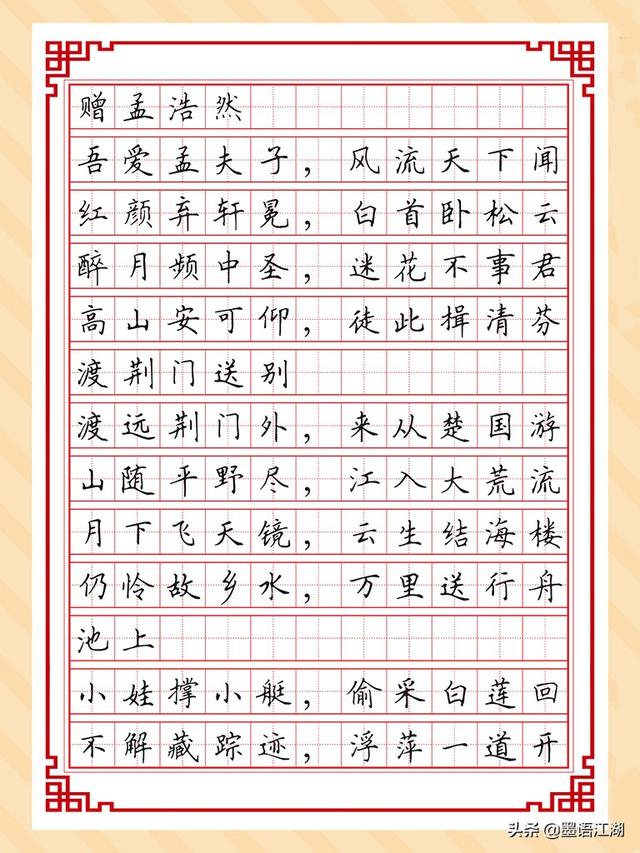 赠孟浩然
吾爱孟夫子，风流天下闻
红颜弃轩冕，白首卧松云
醉月频中圣，迷花不事君
高山安可仰，徒此揖清芬
渡荆门送别
渡远荆门外，来从楚国游
山随平野尽，江入大荒流
月下飞天镜，云生结海楼
仍怜故乡水，万里送行舟
池上
小娃撑小艇，偷采白莲回
不解藏踪迹，浮萍一道开
头条 @墨语江湖